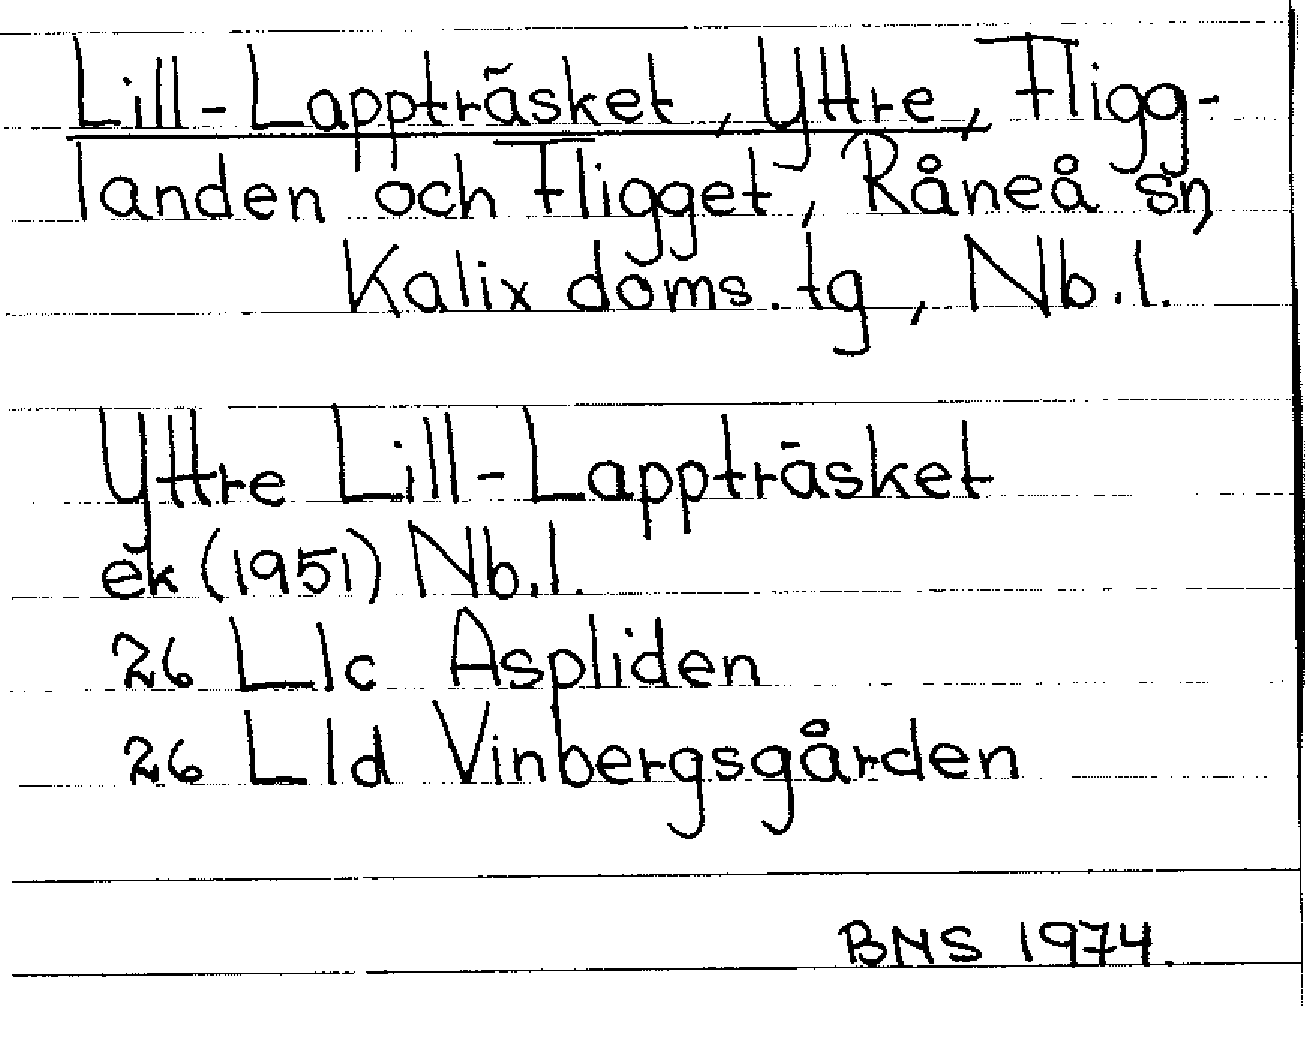 Lill-Lappträsket, Yttre, Fligg-
landen och Fligget, Råneå sn,
Kalix doms. tg, Nb.l.
Yttre Lill-Lappträsket
ek (1951) Nb.l.
26 L1c Aspliden
26 L1d Vinbergsgården
BNS 1974.